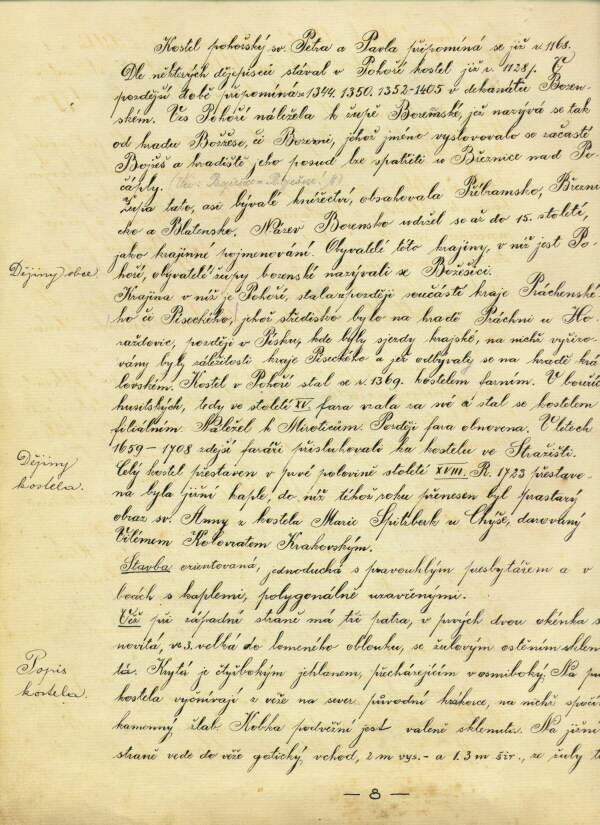 Kostel pohořský sv. Petra a Pavla připomíná se již r. 1168.
Dle některých dějepisců stával v Pohoří kostel již r. 1128/. V
pozdější době připomíná se 1344. 1350. 1352-1405 v dekanátu Bozen-
ském. Ves Pohoří náležela k župě Bozenské, jež nazývá se tak
od hradu Bozzese, či Bozenni, jehož jméno vyslovovalo se začasté
Bojzes a hradiště jeho posud lze spatřiti u Březnice nad Po-
čáply.
Župa tato, asi bývalé knížectví, obsahovala Příbramsko, Březni
cko a Blatensko. Název Bozensko udržel se až do 15. století,
jako krajinné pojmenování. Obyvatelé této krajiny, v níž jest Po-
Dějiny obce. hoří, obyvatelé župy bozenské nazývali se Božešici.
Krajina v níž je Pohoří, stala se později součástí kraje Prácheňské
ho či Píseckého, jehož středisko bylo na hradě Práchni u Ho-
ražďovic, později v Písku, kde byly sjezdy krajské, na nichž vyřizo-
vány byly záležitosti kraje Píseckého a jež odbývaly se na hradě krá-
lovském. Kostel v Pohoří stal se r. 1369. kostelem farním. V bouřích
husitských, tedy ve století XV. fara vzala za své a stal se kostelem
filiálním. Náležel k Miroticům. Později fara obnovena. V letech
1659 – 1708 zdejší faráři přisluhovali ku kostelu ve Stražišti.
Dějiny kostela. Celý kostel přestaven v prvé polovině století XVIII. R. 1723 přestavo-
na byla jižní kaple, do níž téhož roku přenesen byl prastarý
obraz sv. Anny z kostela Marie Spitzberk u Chýše, darovaný
Vilémem Kolovratem Krakovským.
Stavba orientovaná, jednoduchá s pravouhlým presbytářem a v
bocích s kaplemi, polygonálně uzavřenými.
Věž při západní straně má tři patra, v prvých dvou okénka s
novitá, ve 3. velká do lomeného oblouku, se žulovým ostěním sklen
Popis kostela. tá. Krytá je čtyřbokým jehlanem, přecházejícím v osmiboký. Na
kostela vyčnívají z věže na sever původní krákorce, na nichž spočí
kamenný žlab. Kobka podvěžní jest valeně sklenuta. Na jižní
straně vede do věže gotický vchod, 2 m vys. – a 1.3 m šir., ze žuly
— 8 —